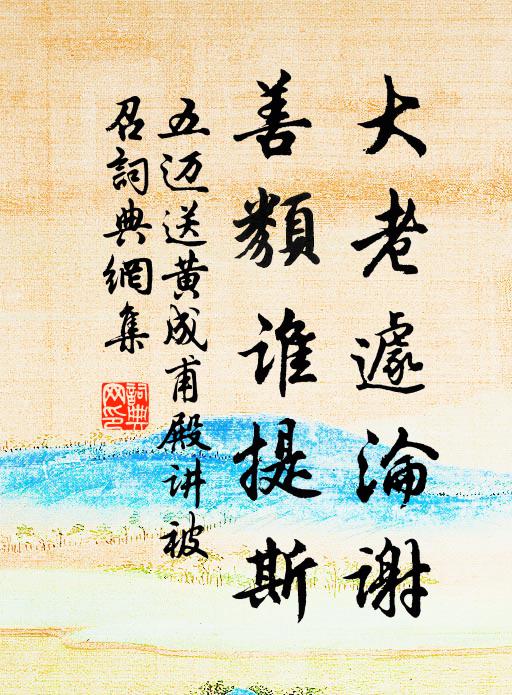 大老遽淪謝
善類誰提斯
五迈送黄成甫殿讲被
召詞典網集
詞典
网印